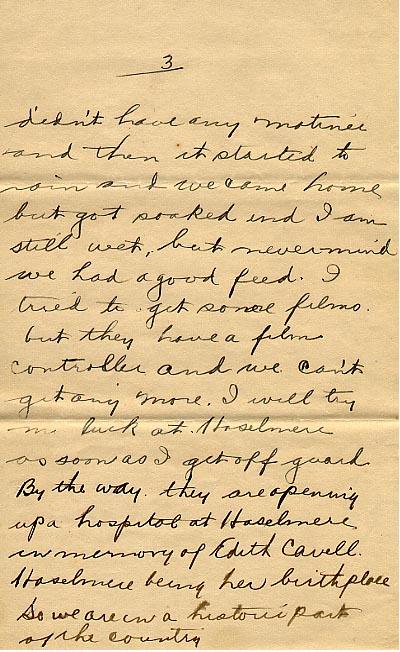 3
didn't have any matinee
and then it started to
rain and we came home
but got soaked and I am
still wet, but nevermind
we had a good feed. I
tried to get some films.
but they have a film
controller and we can't
get any more. I will try
my luck at Haselmere
as soon as I get off guard
By the way. they are opening
up a hospital at Haselmere
in memory of Edith Cavell.
Haselmere being her birthplace
So we are in a historic part
of the country